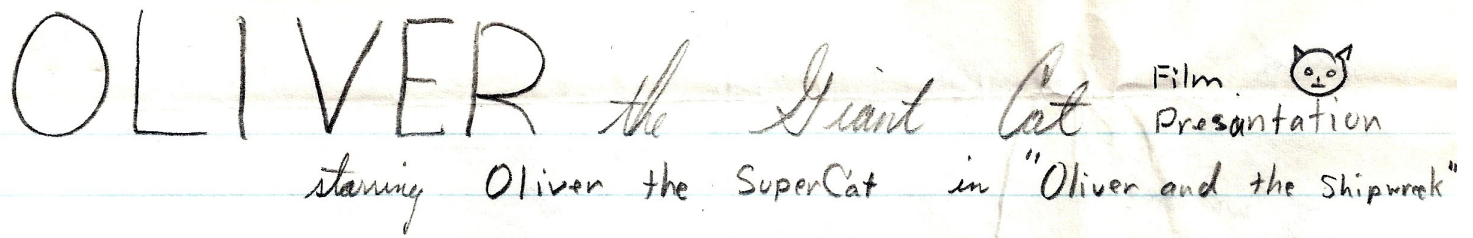 OLIVER the Giant Cat Film
Presantation
starring Oliver the SuperCat in "Oliver and the Shipwreck"